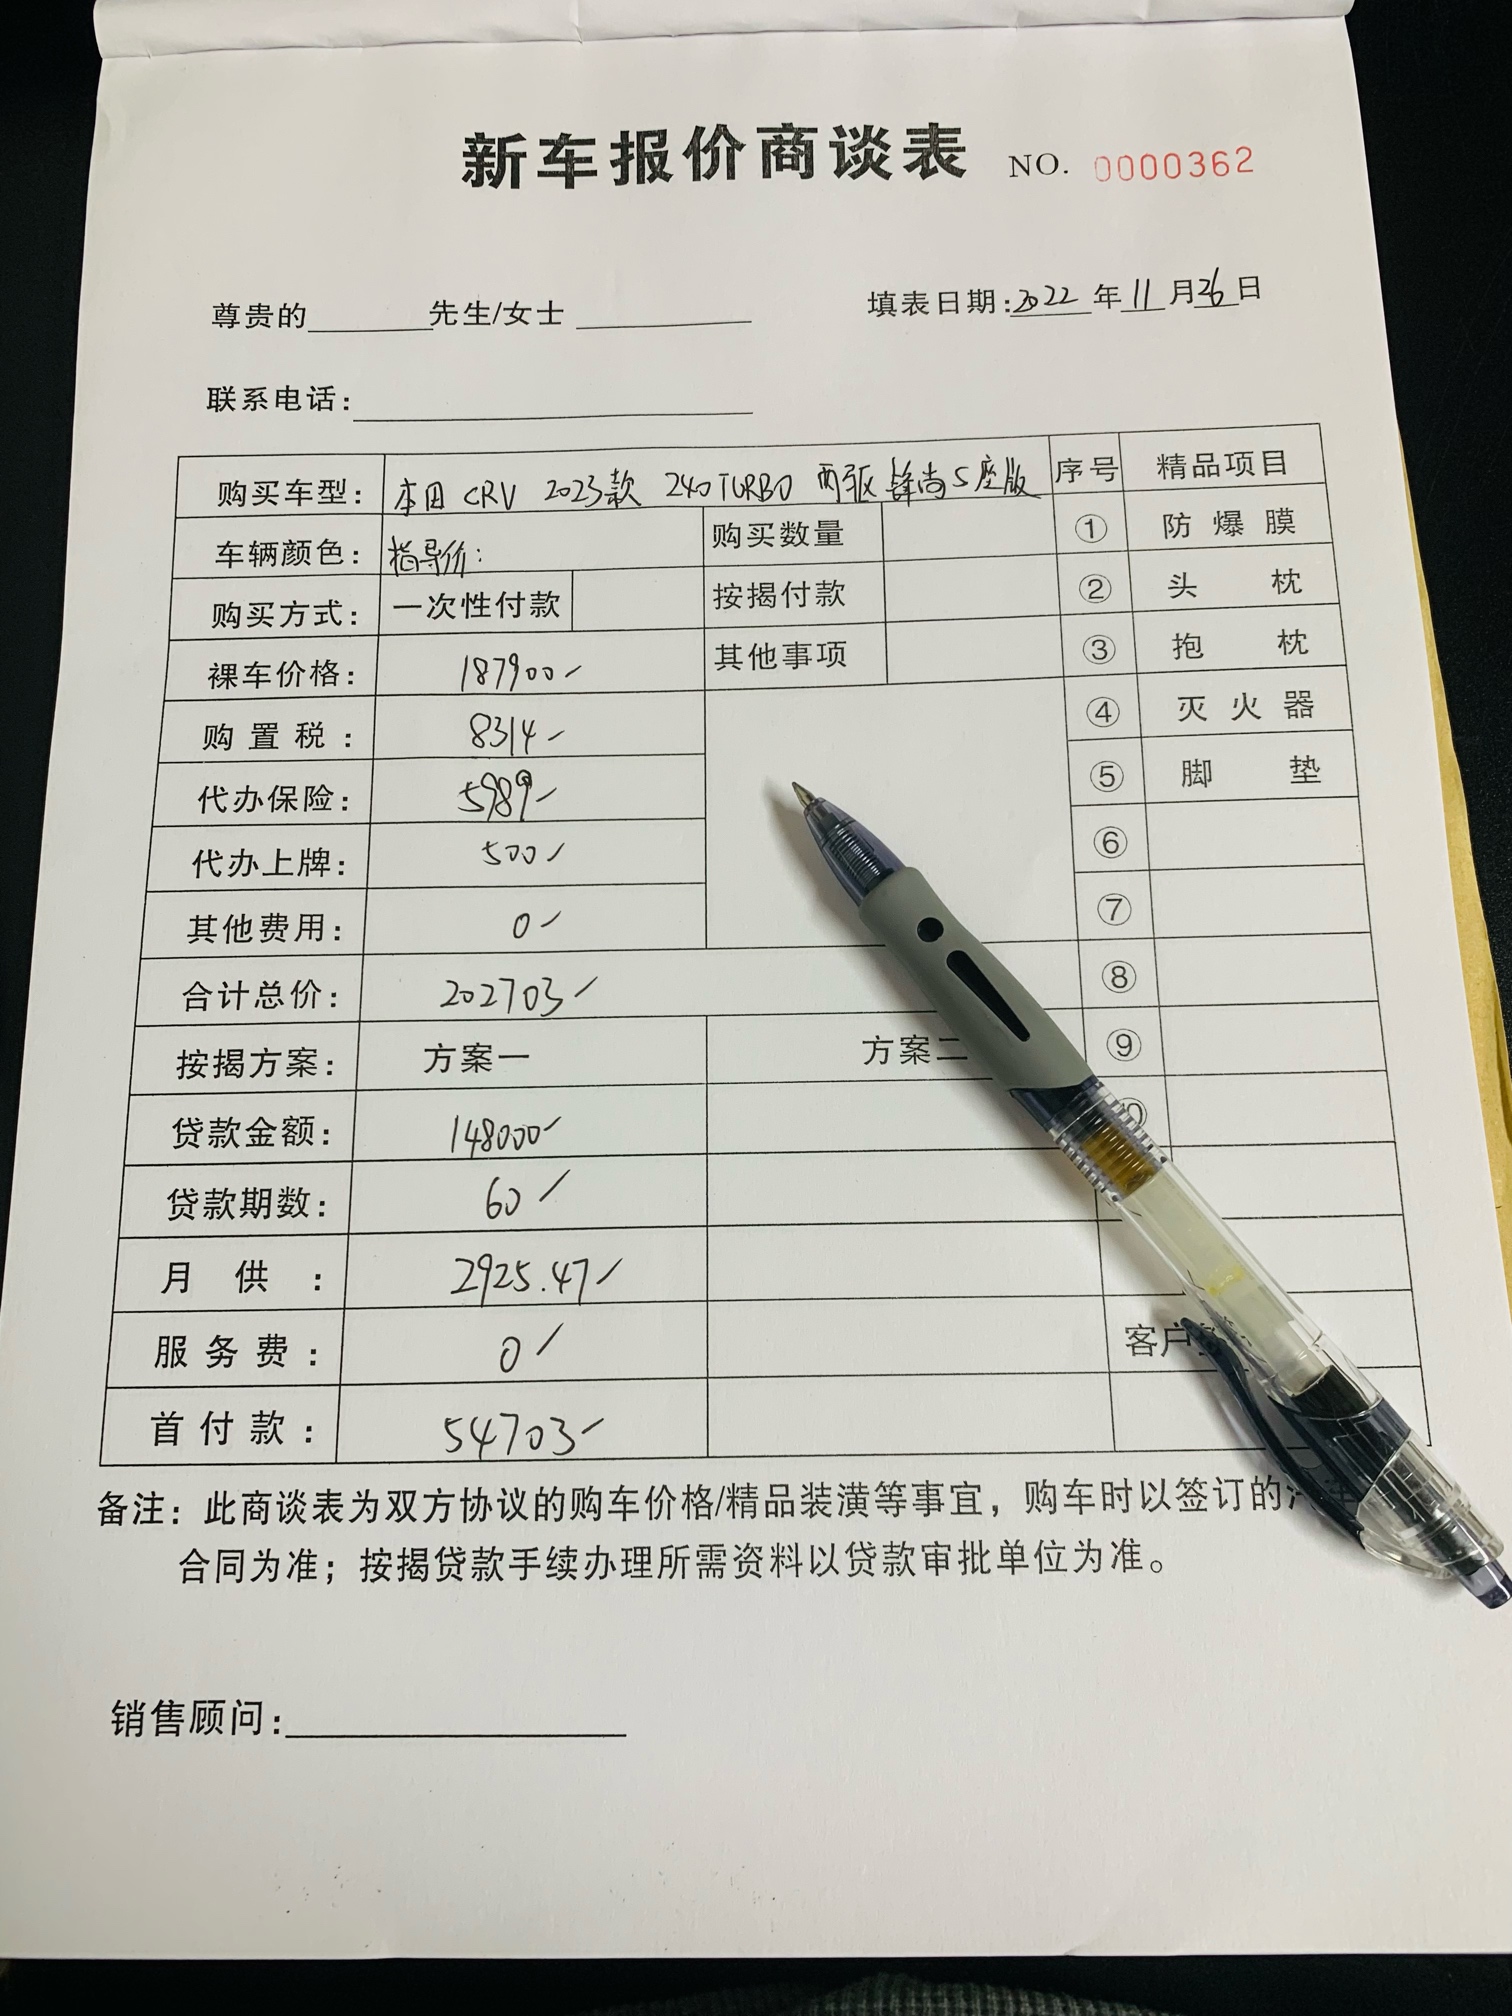 新车报价商谈表 NO. 0000362
尊贵的 先生/女士 填表日期:2022年11月26日
联系电话:
购买车型: 本田 CRV 2023款 240TURBO 两驱 锋尚5座版 序号 精品项目
车辆颜色: 指导价: 购买数量 ① 防爆膜
购买方式: 一次性付款 按揭付款 ② 头枕
裸车价格: 187900 其他事项 ③ 抱枕
购置税: 8314 ④ 灭火器
代办保险: 5989 ⑤ 脚垫
代办上牌: 500 ⑥
其他费用: 0 ⑦
合计总价: 202703 ⑧
按揭方案: 方案一 方案二 ⑨
贷款金额: 148000
贷款期数: 60
月供: 2925.47
服务费: 0 客户
首付款: 54703
备注: 此商谈表为双方协议的购车价格/精品装潢等事宜，购车时以签订的
合同为准；按揭贷款手续办理所需资料以贷款审批单位为准。
销售顾问: